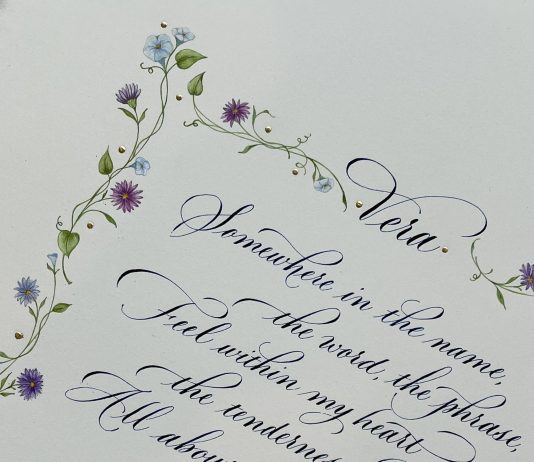 Vera.
Somewhere in the name,
the word, the phrase,
Feel within my heart
the
All